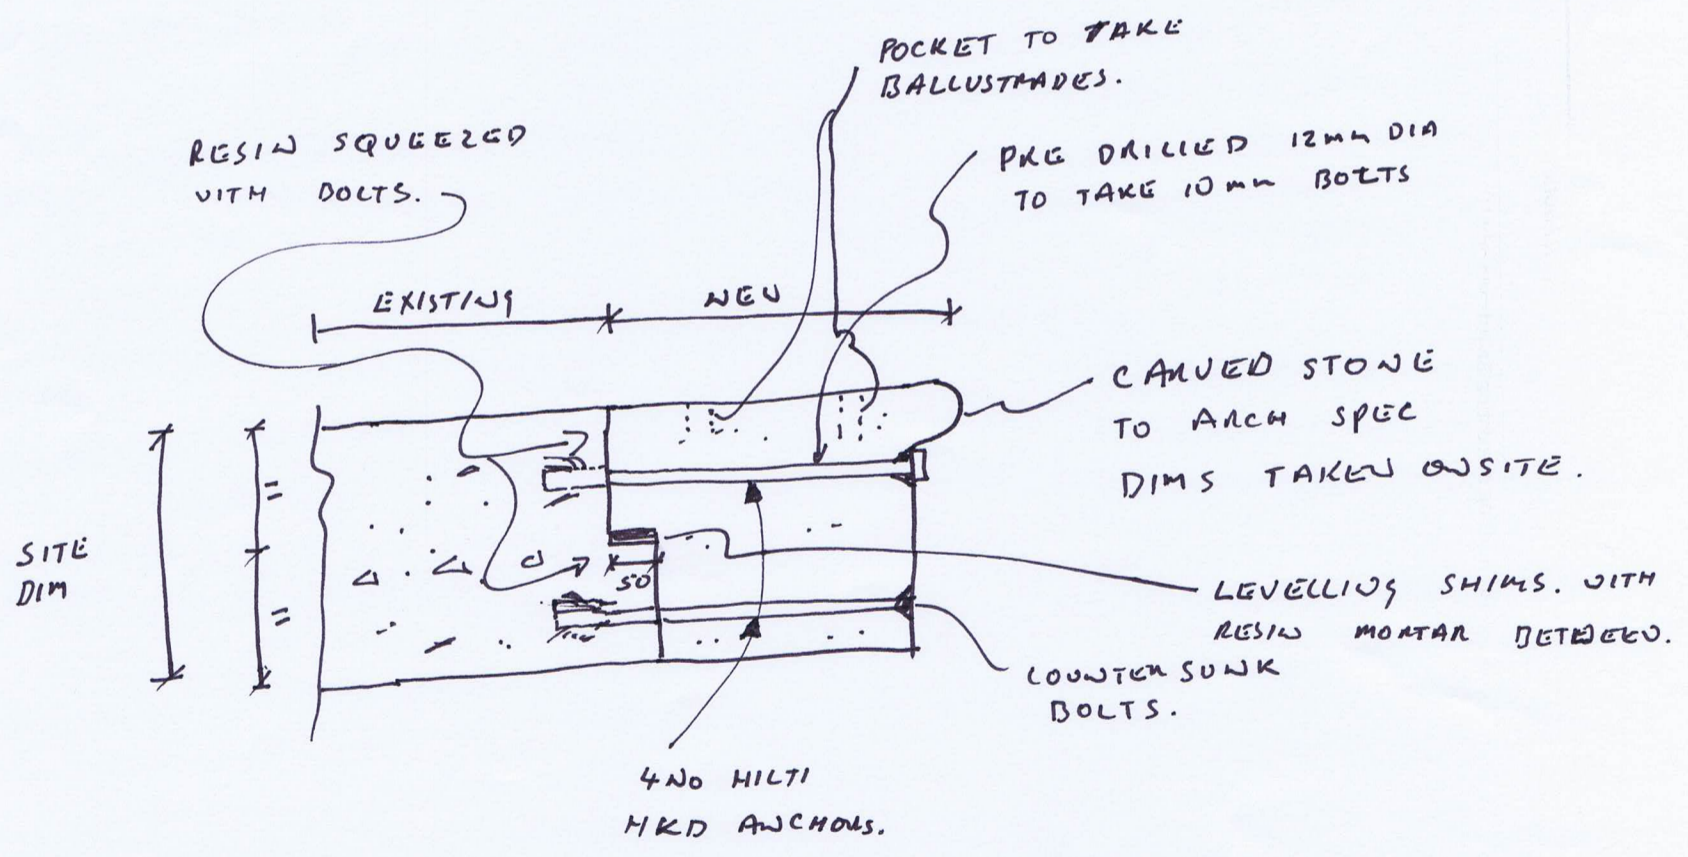 POCKET TO TAKE
BALLUSTRADES.
RESIN SQUEEZED
WITH BOLTS.
PRE DRILLED 12mm DIA
TO TAKE 10mm BOLTS
EXISTING
NEW
CARVED STONE
TO ARCH SPEC
DIMS TAKEN ONSITE.
=
SITE
DIM
50
=
LEVELLING SHIMS. WITH
RESIN MORTAR BETWEEN.
COUNTER SUNK
BOLTS.
4NO HILTI
HKD ANCHORS.